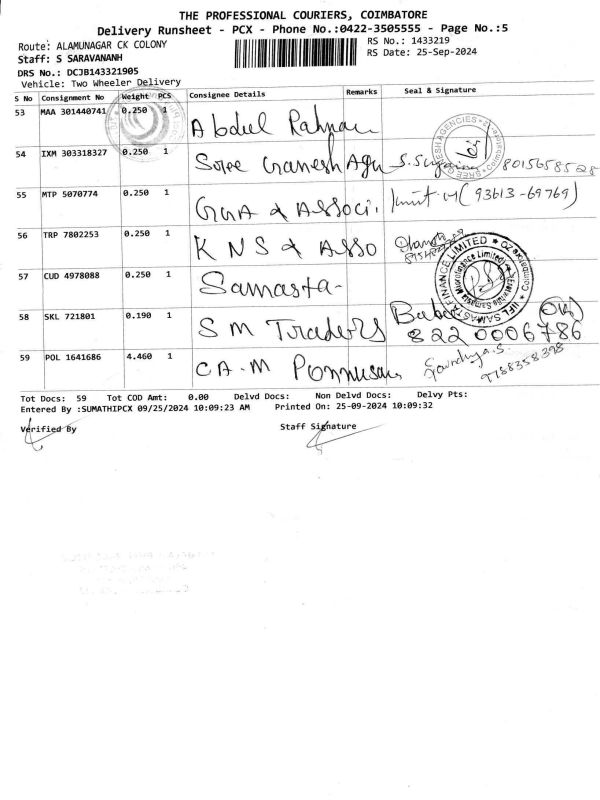 THE PROFESSIONAL COURIERS, COIMBATORE
Delivery Runsheet - PCX - Phone No.:0422-3505555 - Page No.:5
Route: ALAMUNAGAR CK COLONY
RS No.: 1433219
Staff: S SARAVANANH
RS Date: 25-Sep-2024
DRS No.: DCJB143321905
Vehicle: Two Wheeler Delivery
S No Consignment No Weight PCS Consignee Details Remarks Seal & Signature
53 MAA 301440741 0.250 1 Abdul Rahman
54 IXM 303318327 0.250 1 Sree Ganesh Agn 8015658528
SREE GANESH AGENCIES
55 MTP 5070774 0.250 1 & Associ. (93613-69769)
56 TRP 7802253 0.250 1 K N S & Asso
57 CUD 4978088 0.250 1 Samasta-
IIFL SAMASTA FINANCE LIMITED Coimbatore
58 SKL 721801 0.190 1 S M Traders 8220006786
59 POL 1641686 4.460 1 CA-M Ponnusam
Tot Docs: 59 Tot COD Amt: 0.00 Delvd Docs: Non Delvd Docs: Delvy Pts:
Entered By :SUMATHIPCX 09/25/2024 10:09:23 AM Printed On: 25-09-2024 10:09:32
Verified By Staff Signature